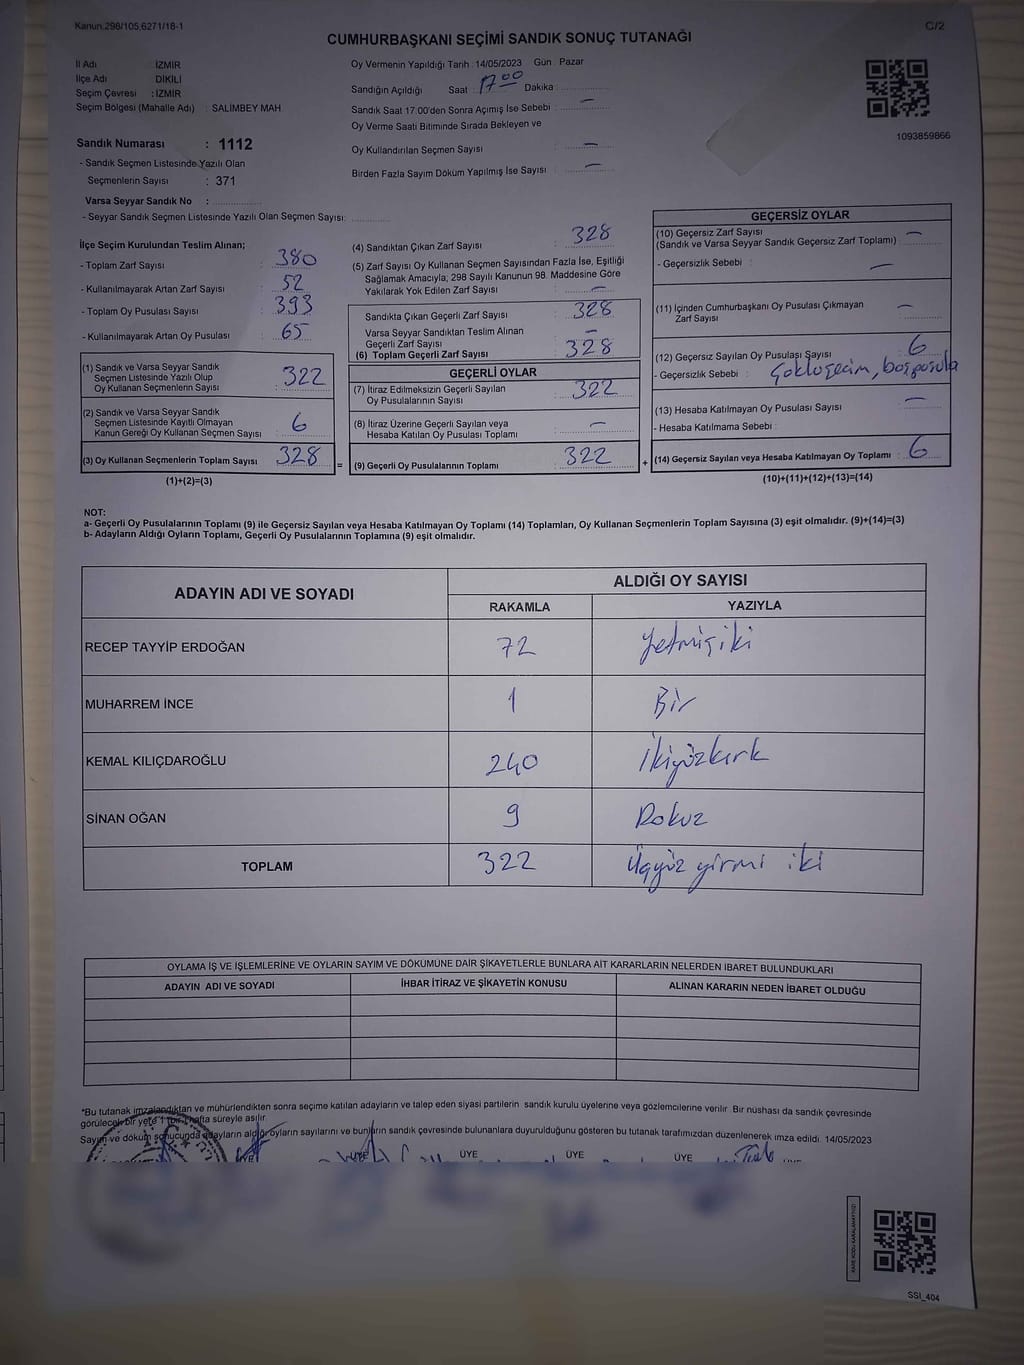 Kanun.298/105,6271/18-1
C/2
CUMHURBAŞKANI SEÇİMİ SANDIK SONUÇ TUTANAĞI
İl Adı : İZMİR
İlçe Adı DİKİLİ
Seçim Çevresi : İZMİR
Seçim Bölgesi (Mahalle Adı) : SALİMBEY MAH
Sandık Numarası : 1112
- Sandık Seçmen Listesinde Yazılı Olan
Seçmenlerin Sayısı : 371
Varsa Seyyar Sandık No :
- Seyyar Sandık Seçmen Listesinde Yazılı Olan Seçmen Sayısı:
Oy Vermenin Yapıldığı Tarih : 14/05/2023 Gün : Pazar
Sandığın Açıldığı Saat : 17.00 Dakika :
Sandık Saat 17:00'den Sonra Açımış İse Sebebi : —
Oy Verme Saati Bitiminde Sırada Bekleyen ve
Oy Kullandırılan Seçmen Sayısı : —
Birden Fazla Sayım Döküm Yapılmış İse Sayısı : —
1093859866
İlçe Seçim Kurulundan Teslim Alınan;
- Toplam Zarf Sayısı : 380
- Kullanılmayarak Artan Zarf Sayısı : 52
- Toplam Oy Pusulası Sayısı : 393
- Kullanılmayarak Artan Oy Pusulası : 65
(1) Sandık ve Varsa Seyyar Sandık
Seçmen Listesinde Yazılı Olup
Oy Kullanan Seçmenlerin Sayısı : 322
(2) Sandık ve Varsa Seyyar Sandık
Seçmen Listesinde Kayıtlı Olmayan
Kanun Gereği Oy Kullanan Seçmen Sayısı : 6
(3) Oy Kullanan Seçmenlerin Toplam Sayısı : 328
(1)+(2)=(3)
(4) Sandıktan Çıkan Zarf Sayısı : 328
(5) Zarf Sayısı Oy Kullanan Seçmen Sayısından Fazla İse, Eşitliği
Sağlamak Amacıyla; 298 Sayılı Kanunun 98. Maddesine Göre
Yakılarak Yok Edilen Zarf Sayısı : —
Sandıkta Çıkan Geçerli Zarf Sayısı : 328
Varsa Seyyar Sandıktan Teslim Alınan
Geçerli Zarf Sayısı : —
(6) Toplam Geçerli Zarf Sayısı : 328
GEÇERLİ OYLAR
(7) İtiraz Edilmeksizin Geçerli Sayılan
Oy Pusulalarının Sayısı : 322
(8) İtiraz Üzerine Geçerli Sayılan veya
Hesaba Katılan Oy Pusulası Toplamı : —
= (9) Geçerli Oy Pusulalarının Toplamı : 322 +
GEÇERSİZ OYLAR
(10) Geçersiz Zarf Sayısı
(Sandık ve Varsa Seyyar Sandık Geçersiz Zarf Toplamı) : —
- Geçersizlik Sebebi : —
(11) İçinden Cumhurbaşkanı Oy Pusulası Çıkmayan
Zarf Sayısı : —
(12) Geçersiz Sayılan Oy Pusulası Sayısı : 6
- Geçersizlik Sebebi : Çoklu seçim, boş pusula
(13) Hesaba Katılmayan Oy Pusulası Sayısı : —
- Hesaba Katılmama Sebebi :
(14) Geçersiz Sayılan veya Hesaba Katılmayan Oy Toplamı : 6
(10)+(11)+(12)+(13)=(14)
NOT:
a- Geçerli Oy Pusulalarının Toplamı (9) ile Geçersiz Sayılan veya Hesaba Katılmayan Oy Toplamı (14) Toplamları, Oy Kullanan Seçmenlerin Toplam Sayısına (3) eşit olmalıdır. (9)+(14)=(3)
b- Adayların Aldığı Oyların Toplamı, Geçerli Oy Pusulalarının Toplamına (9) eşit olmalıdır.
ADAYIN ADI VE SOYADI
ALDIĞI OY SAYISI
RAKAMLA YAZIYLA
RECEP TAYYİP ERDOĞAN 72 yetmişiki
MUHARREM İNCE 1 Bir
KEMAL KILIÇDAROĞLU 240 İkiyüzkırk
SİNAN OĞAN 9 Dokuz
TOPLAM 322 Üçyüz yirmi iki
OYLAMA İŞ VE İŞLEMLERİNE VE OYLARIN SAYIM VE DÖKÜMÜNE DAİR ŞİKAYETLERLE BUNLARA AİT KARARLARIN NELERDEN İBARET BULUNDUKLARI
ADAYIN ADI VE SOYADI İHBAR İTİRAZ VE ŞİKAYETİN KONUSU ALINAN KARARIN NEDEN İBARET OLDUĞU
*Bu tutanak imzalandıktan ve mühürlendikten sonra seçime katılan adayların ve talep eden siyasi partilerin sandık kurulu üyelerine veya gözlemcilerine verilir. Bir nüshası da sandık çevresinde
görülecek bir yere 1 hafta süreyle asılır.
Sayım ve döküm sonucunda adayların aldığı oyların sayılarını ve bunların sandık çevresinde bulunanlara duyurulduğunu gösteren bu tutanak tarafımızdan düzenlenerek imza edildi. 14/05/2023
ÜYE ÜYE ÜYE
SSİ_404